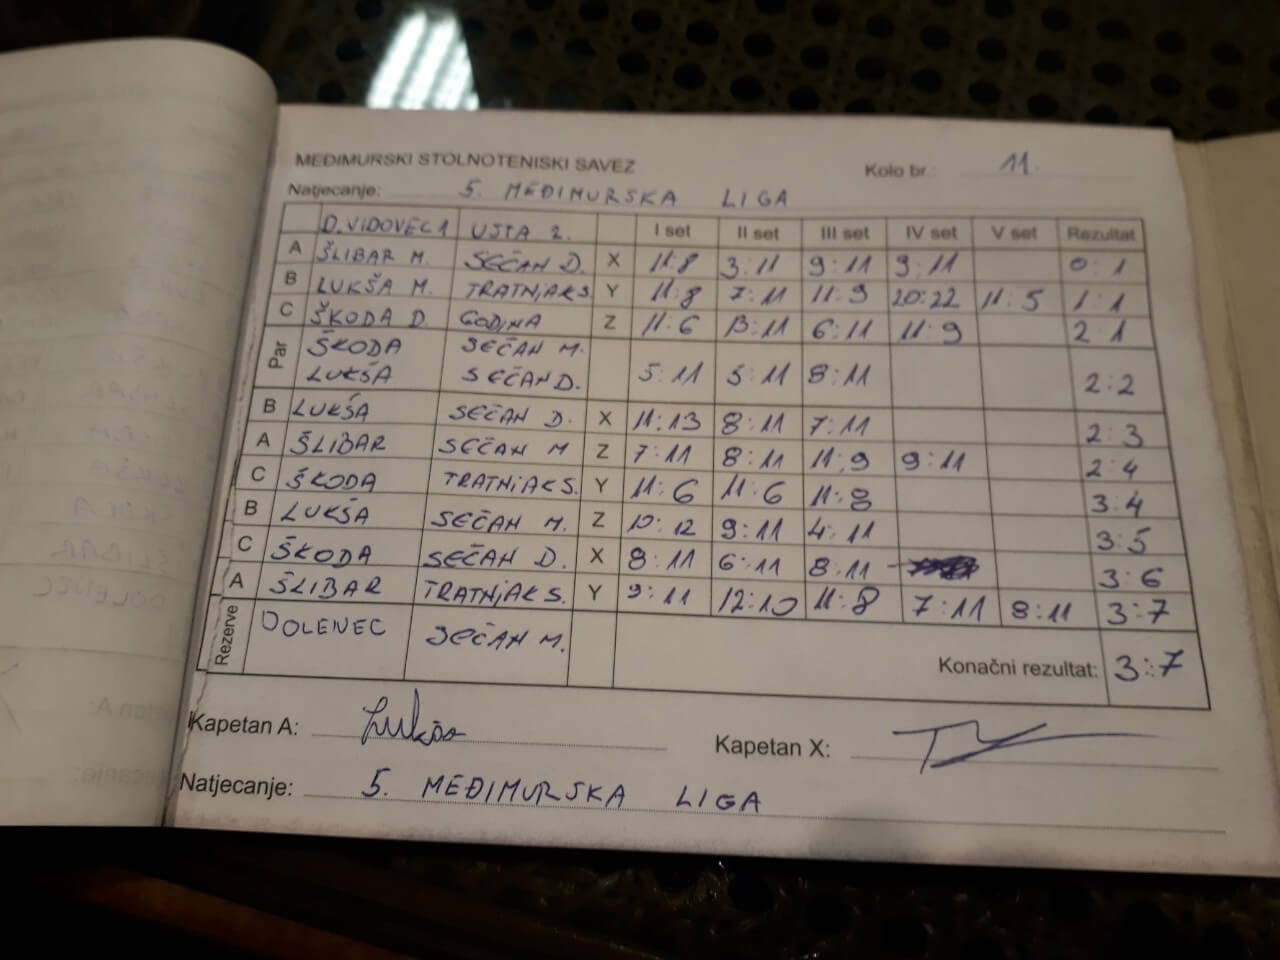 MEĐIMURSKI STOLNOTENISKI SAVEZ Kolo br.: 11.
Natjecanje: 5. MEĐIMURSKA LIGA
D. VIDOVEC 1 UJTA 2. I set II set III set IV set V set Rezultat
A ŠLIBAR M. SEČAN D. X 11:8 3:11 9:11 9:11 0:1
B LUKŠA M. TRATNJAK S. Y 11:8 7:11 11:9 20:22 11:5 1:1
C ŠKODA D. GODINA Z 11:6 13:11 6:11 11:9 2:1
Par ŠKODA SEČAN M.
LUKŠA SEČAN D. 5:11 5:11 8:11 2:2
B LUKŠA SEČAN D. X 11:13 8:11 7:11 2:3
A ŠLIBAR SEČAN M Z 7:11 8:11 11:9 9:11 2:4
C ŠKODA TRATNJAK S. Y 11:6 11:6 11:8 3:4
B LUKŠA SEČAN M. Z 10:12 9:11 4:11 3:5
C ŠKODA SEČAN D. X 8:11 6:11 8:11 3:6
A ŠLIBAR TRATNJAK S. Y 9:11 12:10 11:8 7:11 8:11 3:7
Rezerve DOLENEC SEČAN M. Konačni rezultat: 3:7
Kapetan A: Lukša Kapetan X:
Natjecanje: 5. MEĐIMURSKA LIGA